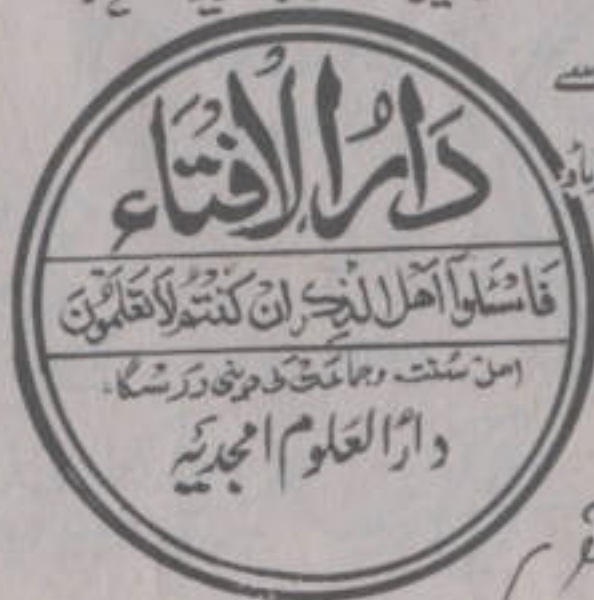 دَارُ الْاِفْتَاء
فَاسْئَلُوْٓا اَهْلَ الذِّكْرِ اِنْ كُنْتُمْ لَا تَعْلَمُوْنَ
اهل سنت وجماعت کی دینی درسگاہ
دارُ العلوم امجدیہ